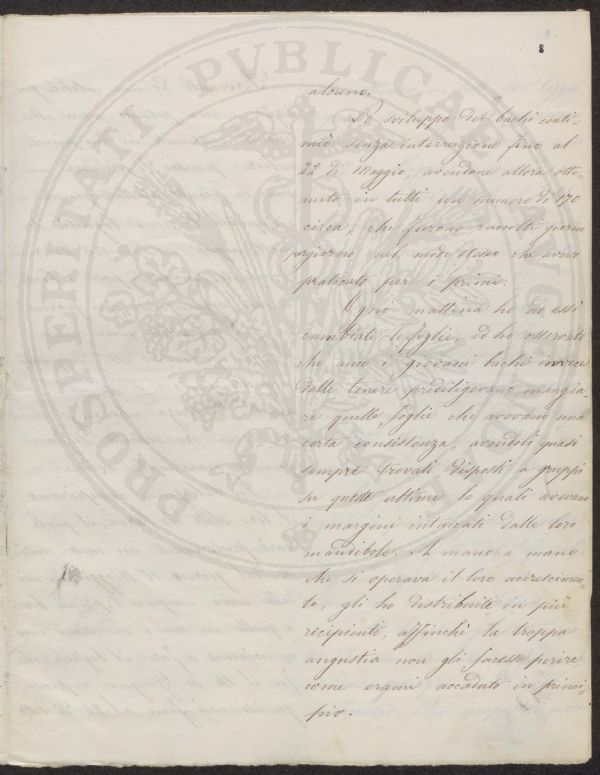 8
alcuno.
Lo sviluppo dei bachi conti-
nuò senza interruzione fino al
22 di Maggio, avendone allora otte-
nuto in tutti un numero di 170
circa, che furono raccolti giorno
per giorno nel modo stesso che avevo
praticato per i primi.
Ogni mattina ho ad essi
cambiate le foglie, ed ho osservato
che anco i giovani bachi invece
delle tenere prediligevano mangia-
re quelle foglie che avevano una
certa consistenza, avendoli quasi
sempre trovati disposti a gruppi
su queste ultime le quali avevano
i margini intaccati dalle loro
mandibole. A mano a mano
che si operava il loro accrescimen-
to, gli ho distribuiti in più
recipienti, affinchè la troppa
angustia non gli facesse perire
come erami accaduto in princi-
pio.
PROSPERITATI PVBLICAE